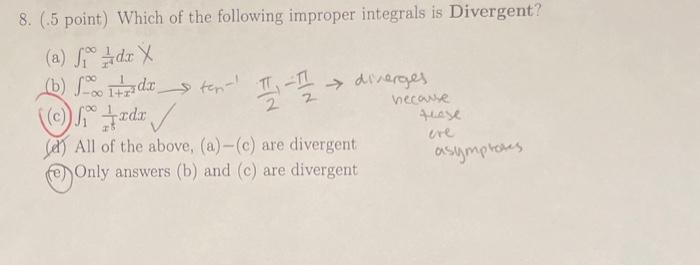 8. (.5 point) Which of the following improper integrals is Divergent?
(a) ∫₁^∞ 1/x⁴ dx X
(b) ∫₋∞^∞ 1/(1+x²) dx → tan⁻¹ π/2, -π/2 → diverges because these are asymptotes
(c) ∫₁^∞ xdx ✓
(d) All of the above, (a)–(c) are divergent
(e) Only answers (b) and (c) are divergent